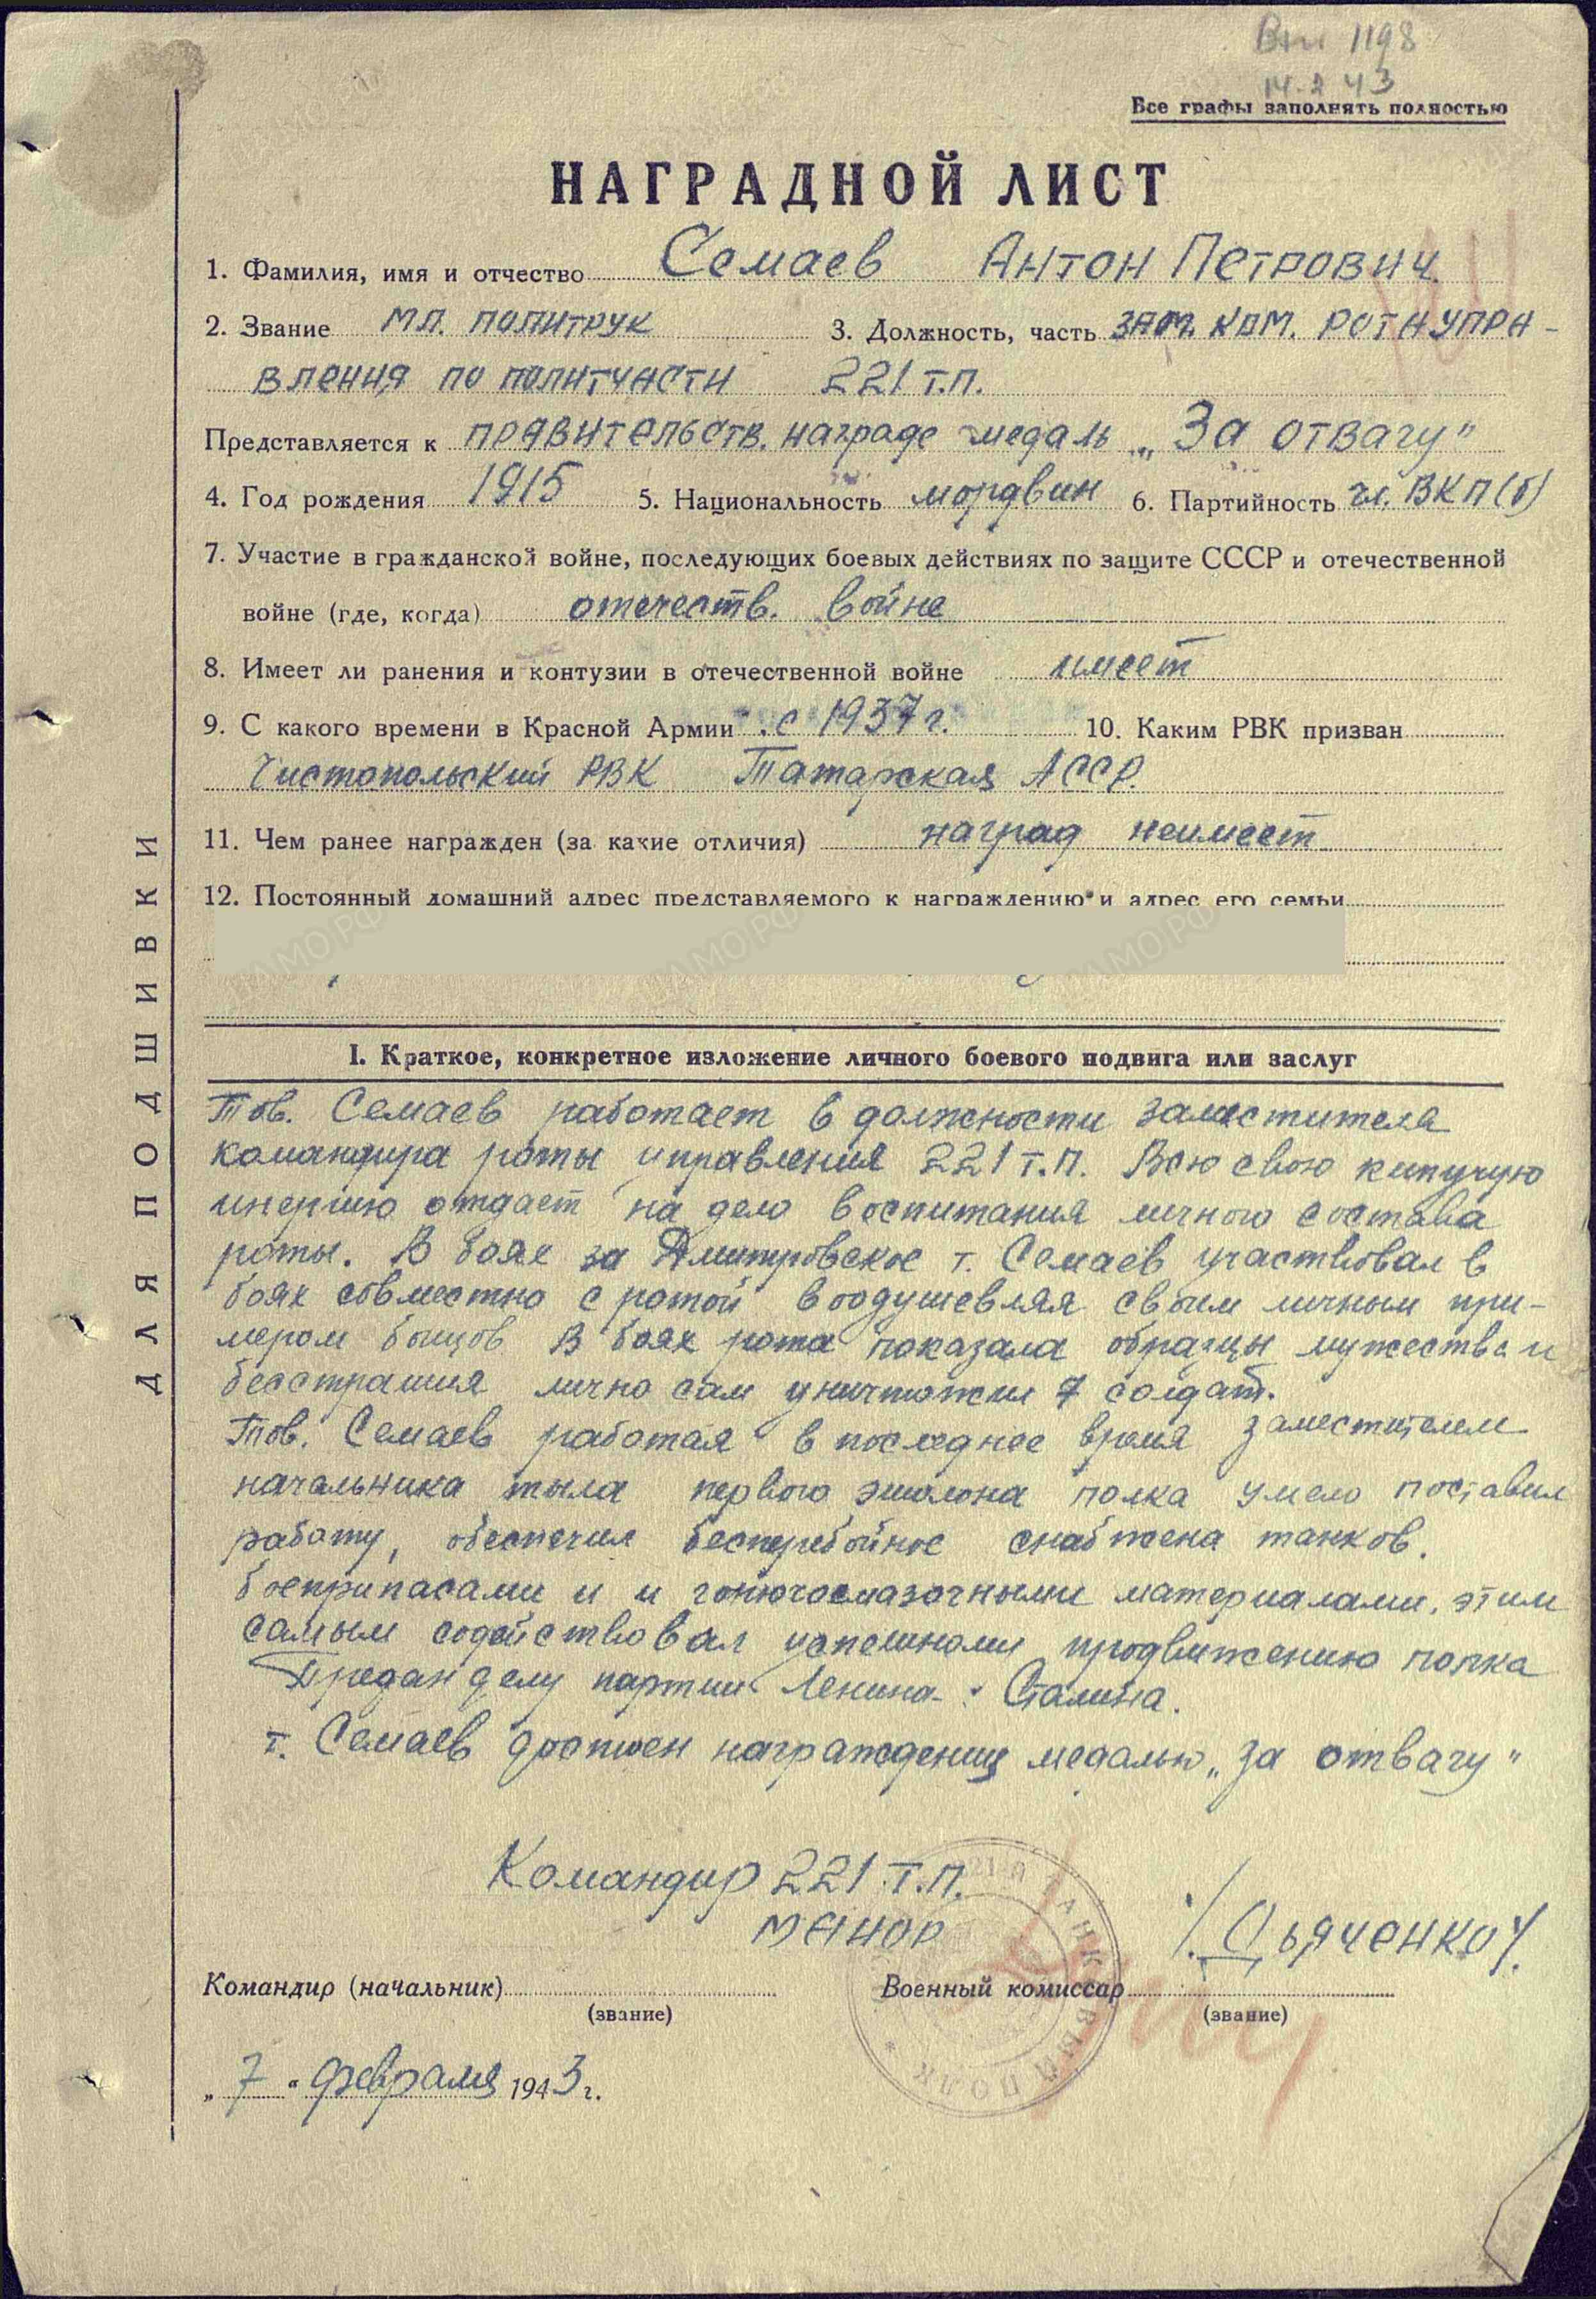 Вх. 1198
14.2 43
Все графы заполнять полностью
НАГРАДНОЙ ЛИСТ
1. Фамилия, имя и отчество Семаев Антон Петрович.
2. Звание мл. политрук 3. Должность, часть зам. ком. роты упра-
вления по политчасти 221 т.п.
Представляется к правительств. награде медаль „За отвагу"
4. Год рождения 1915 5. Национальность мордвин 6. Партийность чл. ВКП(б)
7. Участие в гражданской войне, последующих боевых действиях по защите СССР и отечественной
войне (где, когда) отечеств. войне
8. Имеет ли ранения и контузии в отечественной войне имеет
9. С какого времени в Красной Армии с 1937 г. 10. Каким РВК призван
Чистопольский РВК Татарская АССР.
11. Чем ранее награжден (за какие отличия) наград неимеет
12. Постоянный домашний адрес представляемого к награждению и адрес его семьи
I. Краткое, конкретное изложение личного боевого подвига или заслуг
Тов. Семаев работает в должности заместителя
командира роты управления 221 т.п. Всю свою кипучую
инергию отдает на дело воспитания личного состава
роты. В боях за Дмитровское т. Семаев участвовал в
боях совместно с ротой воодушевляя своим личным при-
мером бойцов В боях рота показала образцы мужества и
бесстрашия лично сам уничтожил 7 солдат.
Тов. Семаев работая в последнее время заместителем
начальника тыла первого эшолона полка умело поставил
работу, обеспечил бесперебойное снабжена танков.
боеприпасами и и горючосмазочными материалами, этим
самым содействовал успешному продвижению полка
Предан делу партии Ленина - Сталина.
т. Семаев достоен награждения медалью „За отвагу"
Командир 221 т.п.
майор /Дьяченко/.
Командир (начальник) Военный комиссар
(звание) (звание)
„7" февраля 1943 г.
ДЛЯ ПОДШИВКИ
221-й ТАНКОВЫЙ ПОЛК
ЦАМО РФ